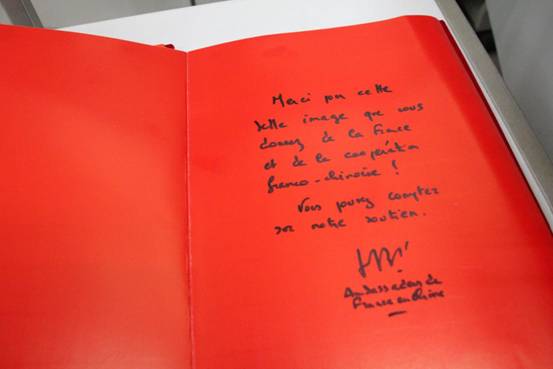 Merci pour cette
belle image que vous
donnez de la France
et de la coopération
franco-chinoise !
Vous pouvez compter
sur notre soutien.
Ambassadeur de
France en Chine